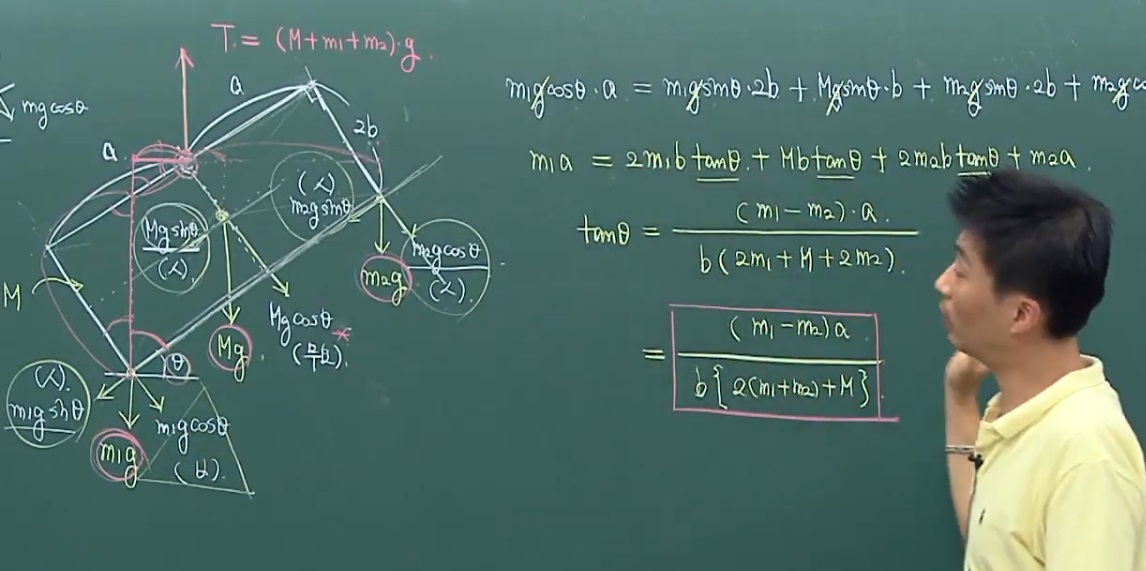 T = (M+m₁+m₂)·g.
mgcosθ
a
2b
a
(人)
m₂gsinθ
Mgsinθ
(人)
m₂g
m₂gcosθ
(人)
M
Mgcosθ
Mg
θ
(人)
m₁gsinθ
m₁g
m₁gcosθ
m₁gcosθ·a = m₁gsinθ·2b + Mgsinθ·b + m₂gsinθ·2b + m₂gco
m₁a = 2m₁b tanθ + Mb tanθ + 2m₂b tanθ + m₂a.
tanθ = (m₁-m₂)·a. / b(2m₁+M+2m₂).
= (m₁-m₂)a / b{2(m₁+m₂)+M}